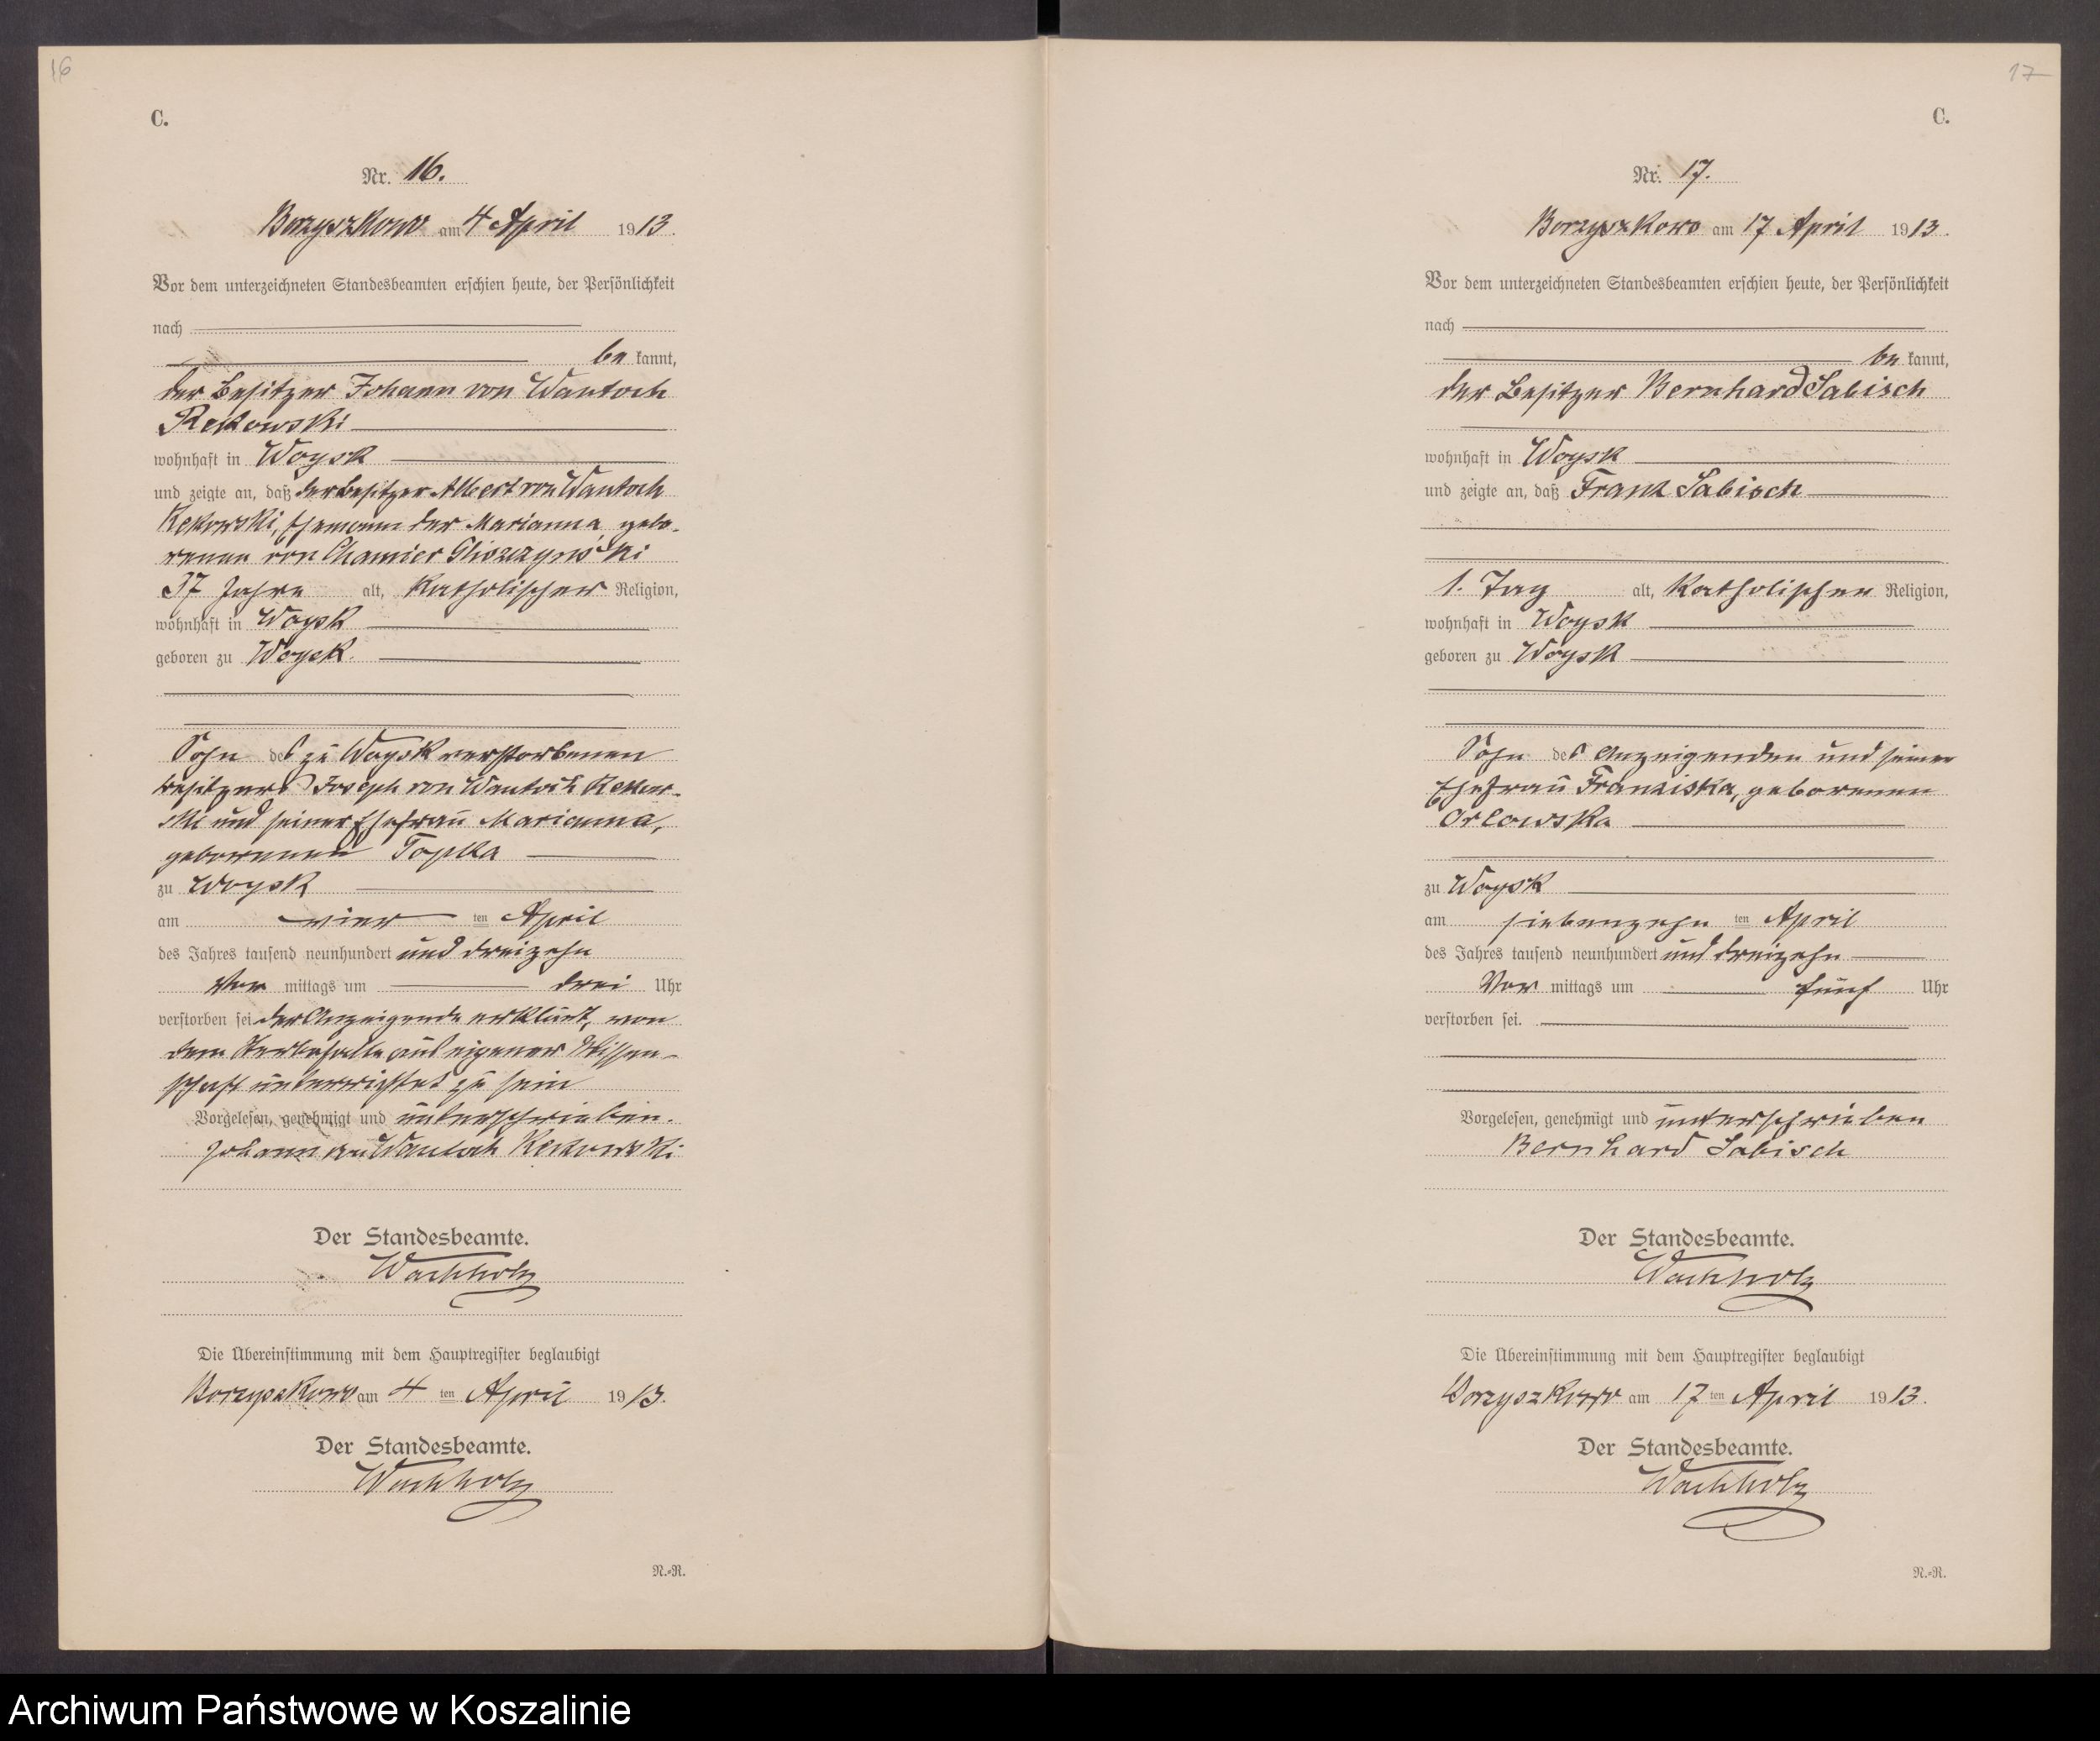 16
C.
Nr. 16.
Borzyszkowo am 4 April 1913.
Vor dem unterzeichneten Standesbeamten erschien heute, der Persönlichkeit
nach
be kannt,
der Besitzer Johann von Wantoch
Rekowski
wohnhaft in Woysk
und zeigte an, daß der Besitzer Albert von Wantoch
Rekowski, Ehemann der Marianna, gebo-
renen von Chamier Gliszczynski
37 Jahre alt, katholischer Religion,
wohnhaft in Woysk
geboren zu Woysk.
Sohn des zu Woysk verstorbenen
Besitzers Joseph von Wantoch Rekow-
ski und seiner Ehefrau Marianna,
geborenen Topka
zu Woysk
am vier ten April
des Jahres tausend neunhundert und dreizehn
Vor mittags um drei Uhr
verstorben sei der Anzeigende erklärt, von
dem Sterbefalle aus eigener Wissen-
schaft unterrichtet zu sein
Vorgelesen, genehmigt und unterschrieben.
Johann von Wantoch Rekowski
Der Standesbeamte.
Wachholz
Die Übereinstimmung mit dem Hauptregister beglaubigt
Borzyszkowo am 4 ten April 1913.
Der Standesbeamte.
Wachholz
N.=R.
17
C.
Nr. 17.
Borzyszkowo am 17 April 1913.
Vor dem unterzeichneten Standesbeamten erschien heute, der Persönlichkeit
nach
be kannt,
der Besitzer Bernhard Sabisch
wohnhaft in Woysk
und zeigte an, daß Frank Sabisch
1. Tag alt, katholischen Religion,
wohnhaft in Woysk
geboren zu Woysk
Sohn des Anzeigenden und seiner
Ehefrau Franziska, geborenen
Orlowska
zu Woysk
am siebenzehn ten April
des Jahres tausend neunhundert und dreizehn
Vor mittags um fünf Uhr
verstorben sei.
Vorgelesen, genehmigt und unterschrieben
Bernhard Sabisch
Der Standesbeamte.
Wachholz
Die Übereinstimmung mit dem Hauptregister beglaubigt
Borzyszkowo am 17 ten April 1913.
Der Standesbeamte.
Wachholz
N.=R.
Archiwum Państwowe w Koszalinie